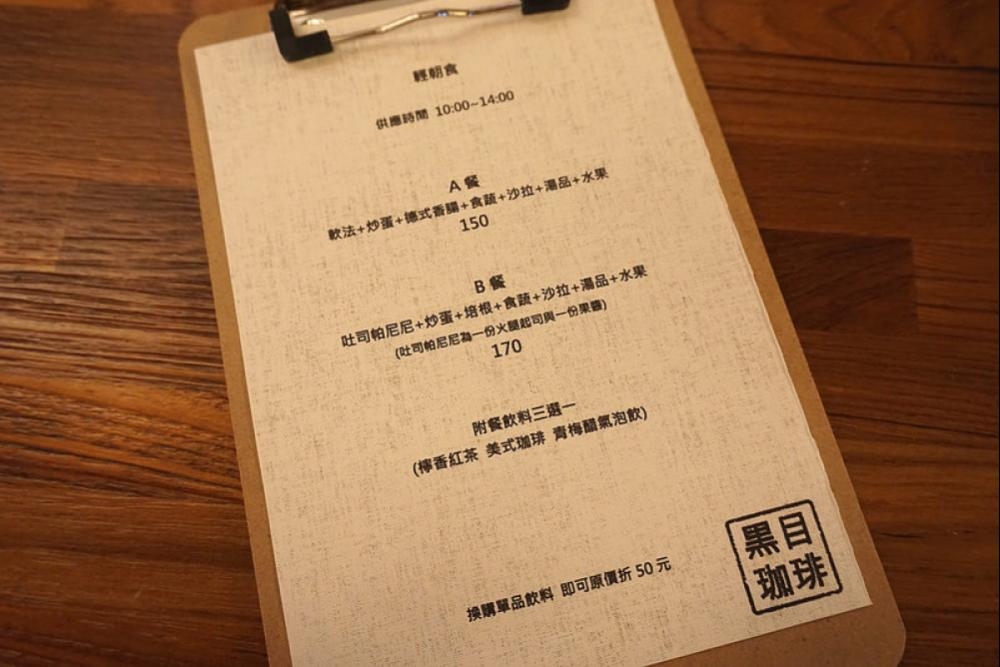 輕朝食
供應時間 10:00~14:00
A 餐
軟法+炒蛋+德式香腸+食蔬+沙拉+湯品+水果
150
B 餐
吐司帕尼尼+炒蛋+培根+食蔬+沙拉+湯品+水果
(吐司帕尼尼為一份火腿起司與一份果醬)
170
附餐飲料三選一
(檸香紅茶 美式珈琲 青梅醋氣泡飲)
換購單品飲料 即可原價折 50 元
黑目
珈琲